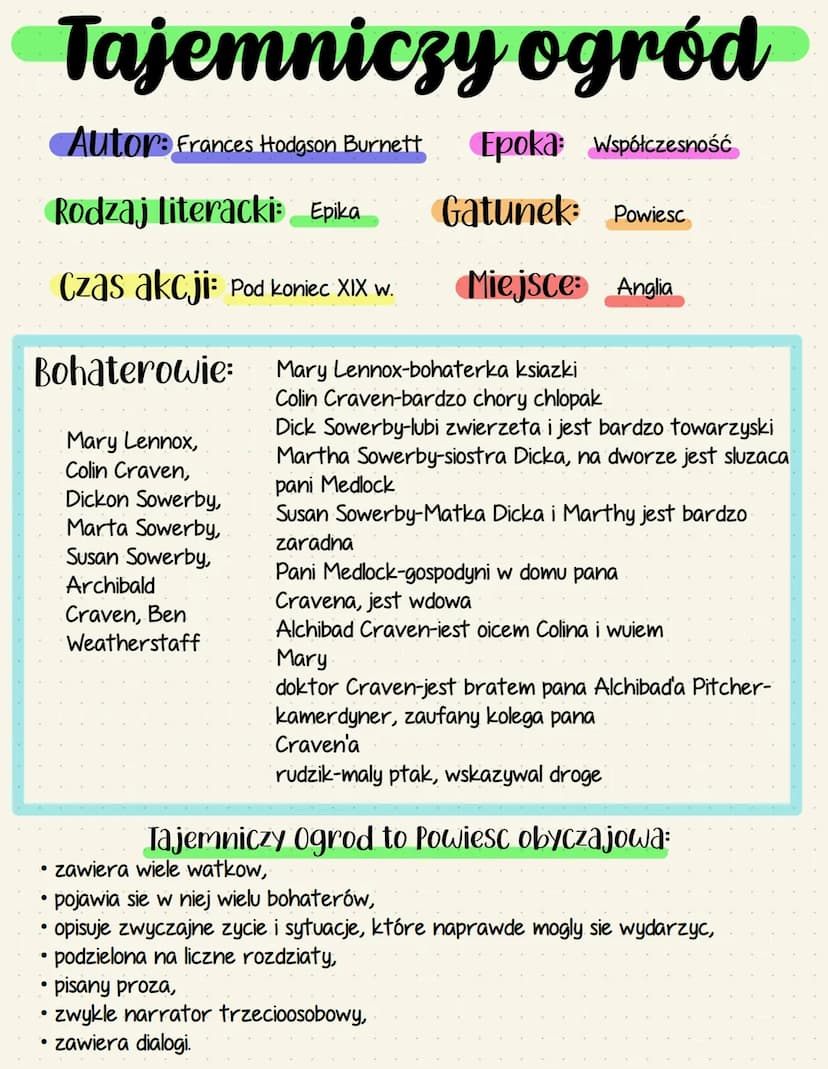 Tajemniczy ogród
Autor: Frances Hodgson Burnett
Epoka: Współczesność
Rodzaj literacki: Epika
Gatunek: Powiesc
Czas akcji: Pod koniec XIX w.
Miejsce: Anglia
Bohaterowie:
Mary Lennox,
Colin Craven,
Dickon Sowerby,
Marta Sowerby,
Susan Sowerby,
Archibald
Craven, Ben
Weatherstaff
Mary Lennox-bohaterka ksiazki
Colin Craven-bardzo chory chlopak
Dick Sowerby-lubi zwierzeta i jest bardzo towarzyski
Martha Sowerby-siostra Dicka, na dworze jest sluzaca
pani Medlock
Susan Sowerby-Matka Dicka i Marthy jest bardzo
zaradna
Pani Medlock-gospodyni w domu pana
Cravena, jest wdowa
Alchibad Craven-iest oicem Colina i wuiem
Mary
doktor Craven-jest bratem pana Alchibad'a Pitcher-
kamerdyner, zaufany kolega pana
Craven'a
rudzik-maly ptak, wskazywal droge
Tajemniczy Ogrod to Powiesc obyczajowa:
• zawiera wiele watkow,
• pojawia sie w niej wielu bohaterów,
• opisuje zwyczajne zycie i sytuacje, które naprawde mogly sie wydarzyc,
• podzielona na liczne rozdziaty,
• pisany proza,
• zwykle narrator trzecioosobowy,
• zawiera dialogi.